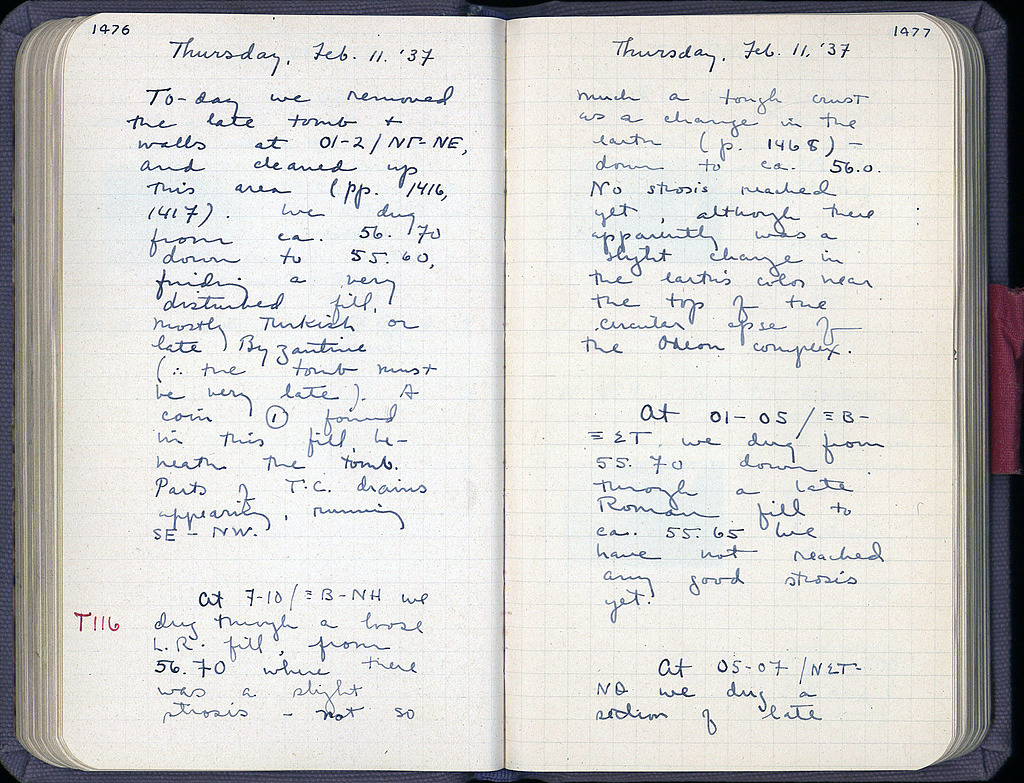 1476
Thursday, Feb. 11. '37
To-day we removed
the late tomb +
walls at 01-2/NΓ-NE,
and cleaned up
this area (pp. 1416,
1417). We dug
from ca. 56.70
down to 55.60,
finding a very
disturbed fill,
mostly Turkish or
late Byzantine
(∴ the tomb must
be very late). A
coin ① found
in this fill, be-
neath the tomb.
Parts of T.C. drains
appearing, running
SE - NW.
At 7-10/ΞB-NH we
T116
dug through a loose
L.R. fill, from
56.70 where there
was a slight
strosis - not so
1477
Thursday, Feb. 11, '37
much a tough crust
as a change in the
earth (p. 1468) -
down to ca. 56.0.
No strosis reached
yet, although there
apparently was a
slight change in
the earth's color near
the top of the
circular apse of
the Odeon complex.
At 01-05/ΞB-
ΞΣT we dug from
55.70 down
through a late
Roman fill to
ca. 55.65 We
have not reached
any good strosis
yet.
At 05-07/NΣT-
we dug a
section of late